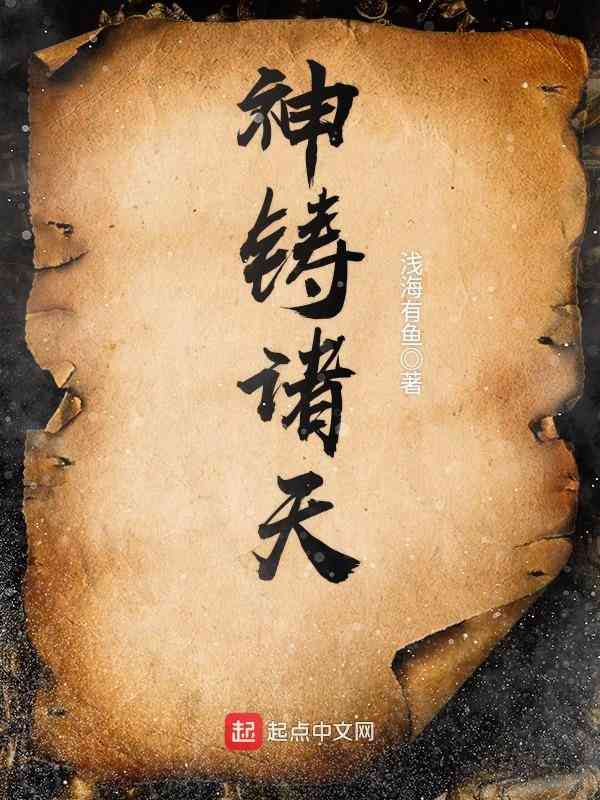 神铸诸天
浅海有鱼〇著
起 起点中文网